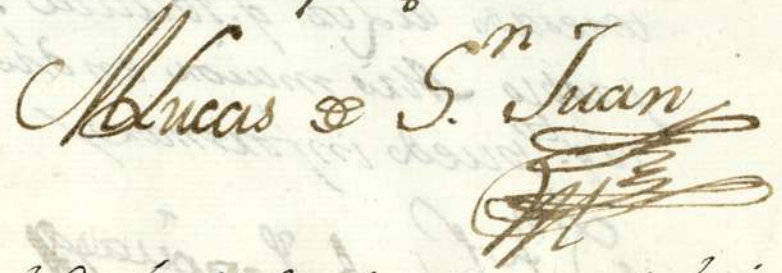 M Lucas de S.n Juan